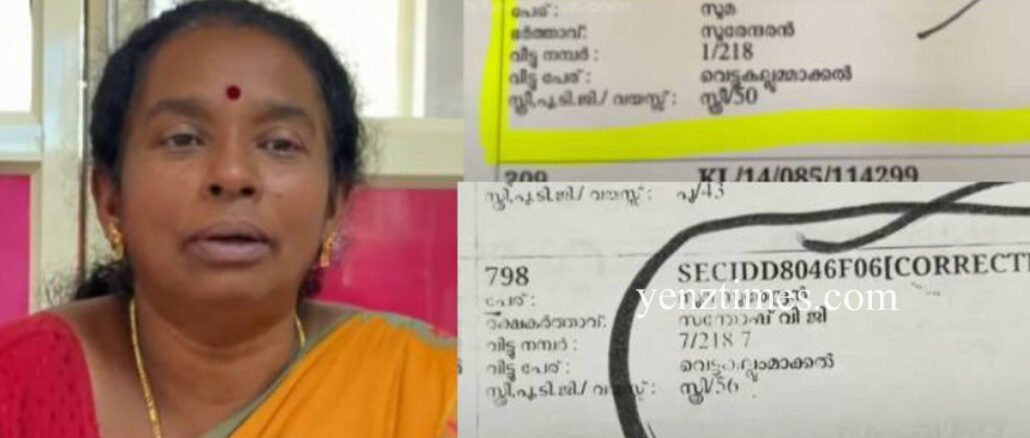 പേര് : സുമ
ഭർത്താവ്: സുരേന്ദരൻ
വീട്ടു നമ്പർ : 1/218
വീട്ടു പേര് : വെട്ടുകല്ലുമ്മാക്കൽ
സ്ത്രീ,പു,ടി.ജി./ വയസ്സ് : സ്ത്രീ/50
209 KL/14/085/114299
സ്ത്രീ,പു,ടി.ജി./ വയസ്സ് : പു/43
798 SECIDD8046F06[CORRECTI
yenztimes.com
പേര് :
രക്ഷകർത്താവ്: സന്തോഷ് വി ജി
വീട്ടു നമ്പർ : 7/218 7
വീട്ടു പേര് : വെട്ടുകല്ലുംമാക്കൽ
സ്ത്രീ,പു,ടി.ജി./ വയസ്സ് : സ്ത്രീ/56